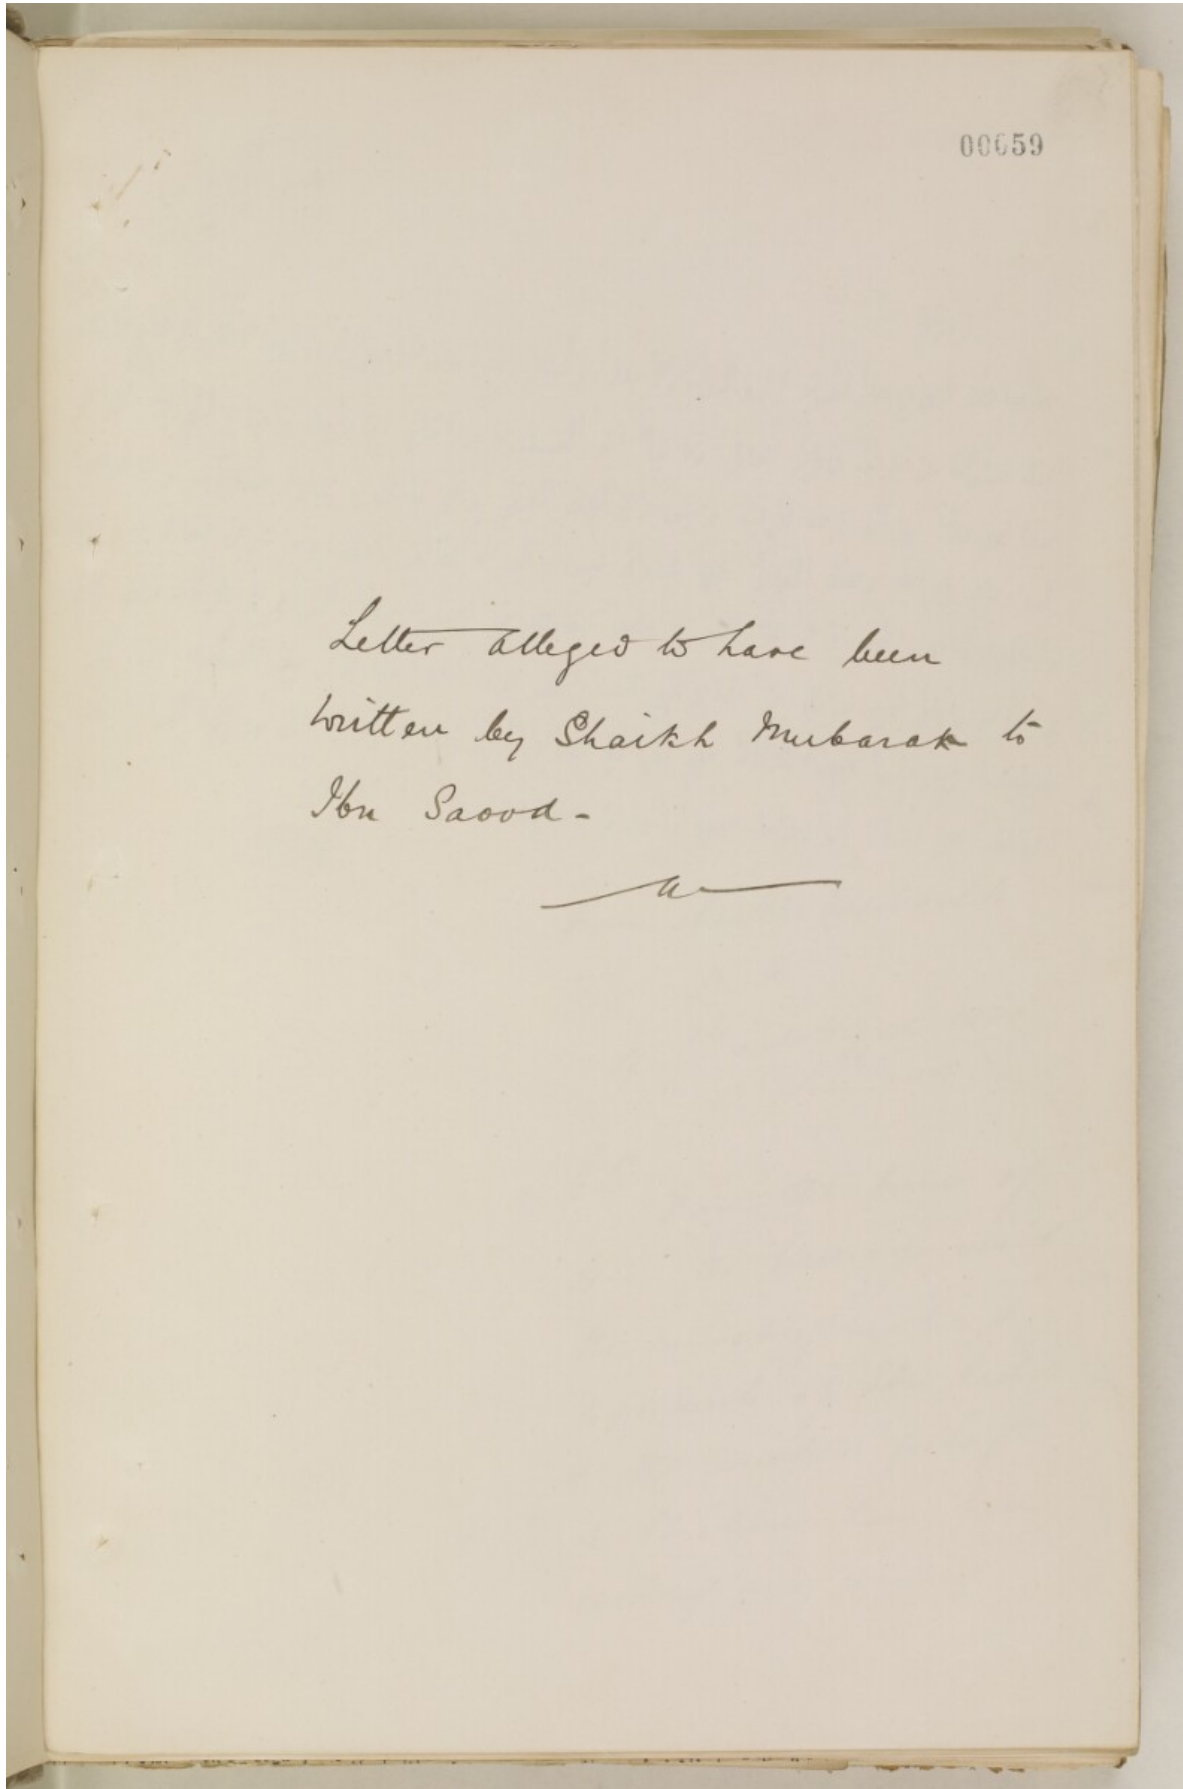 00059
Letter alleged to have been
written by Shaikh Mubarak to
Ibn Saood -